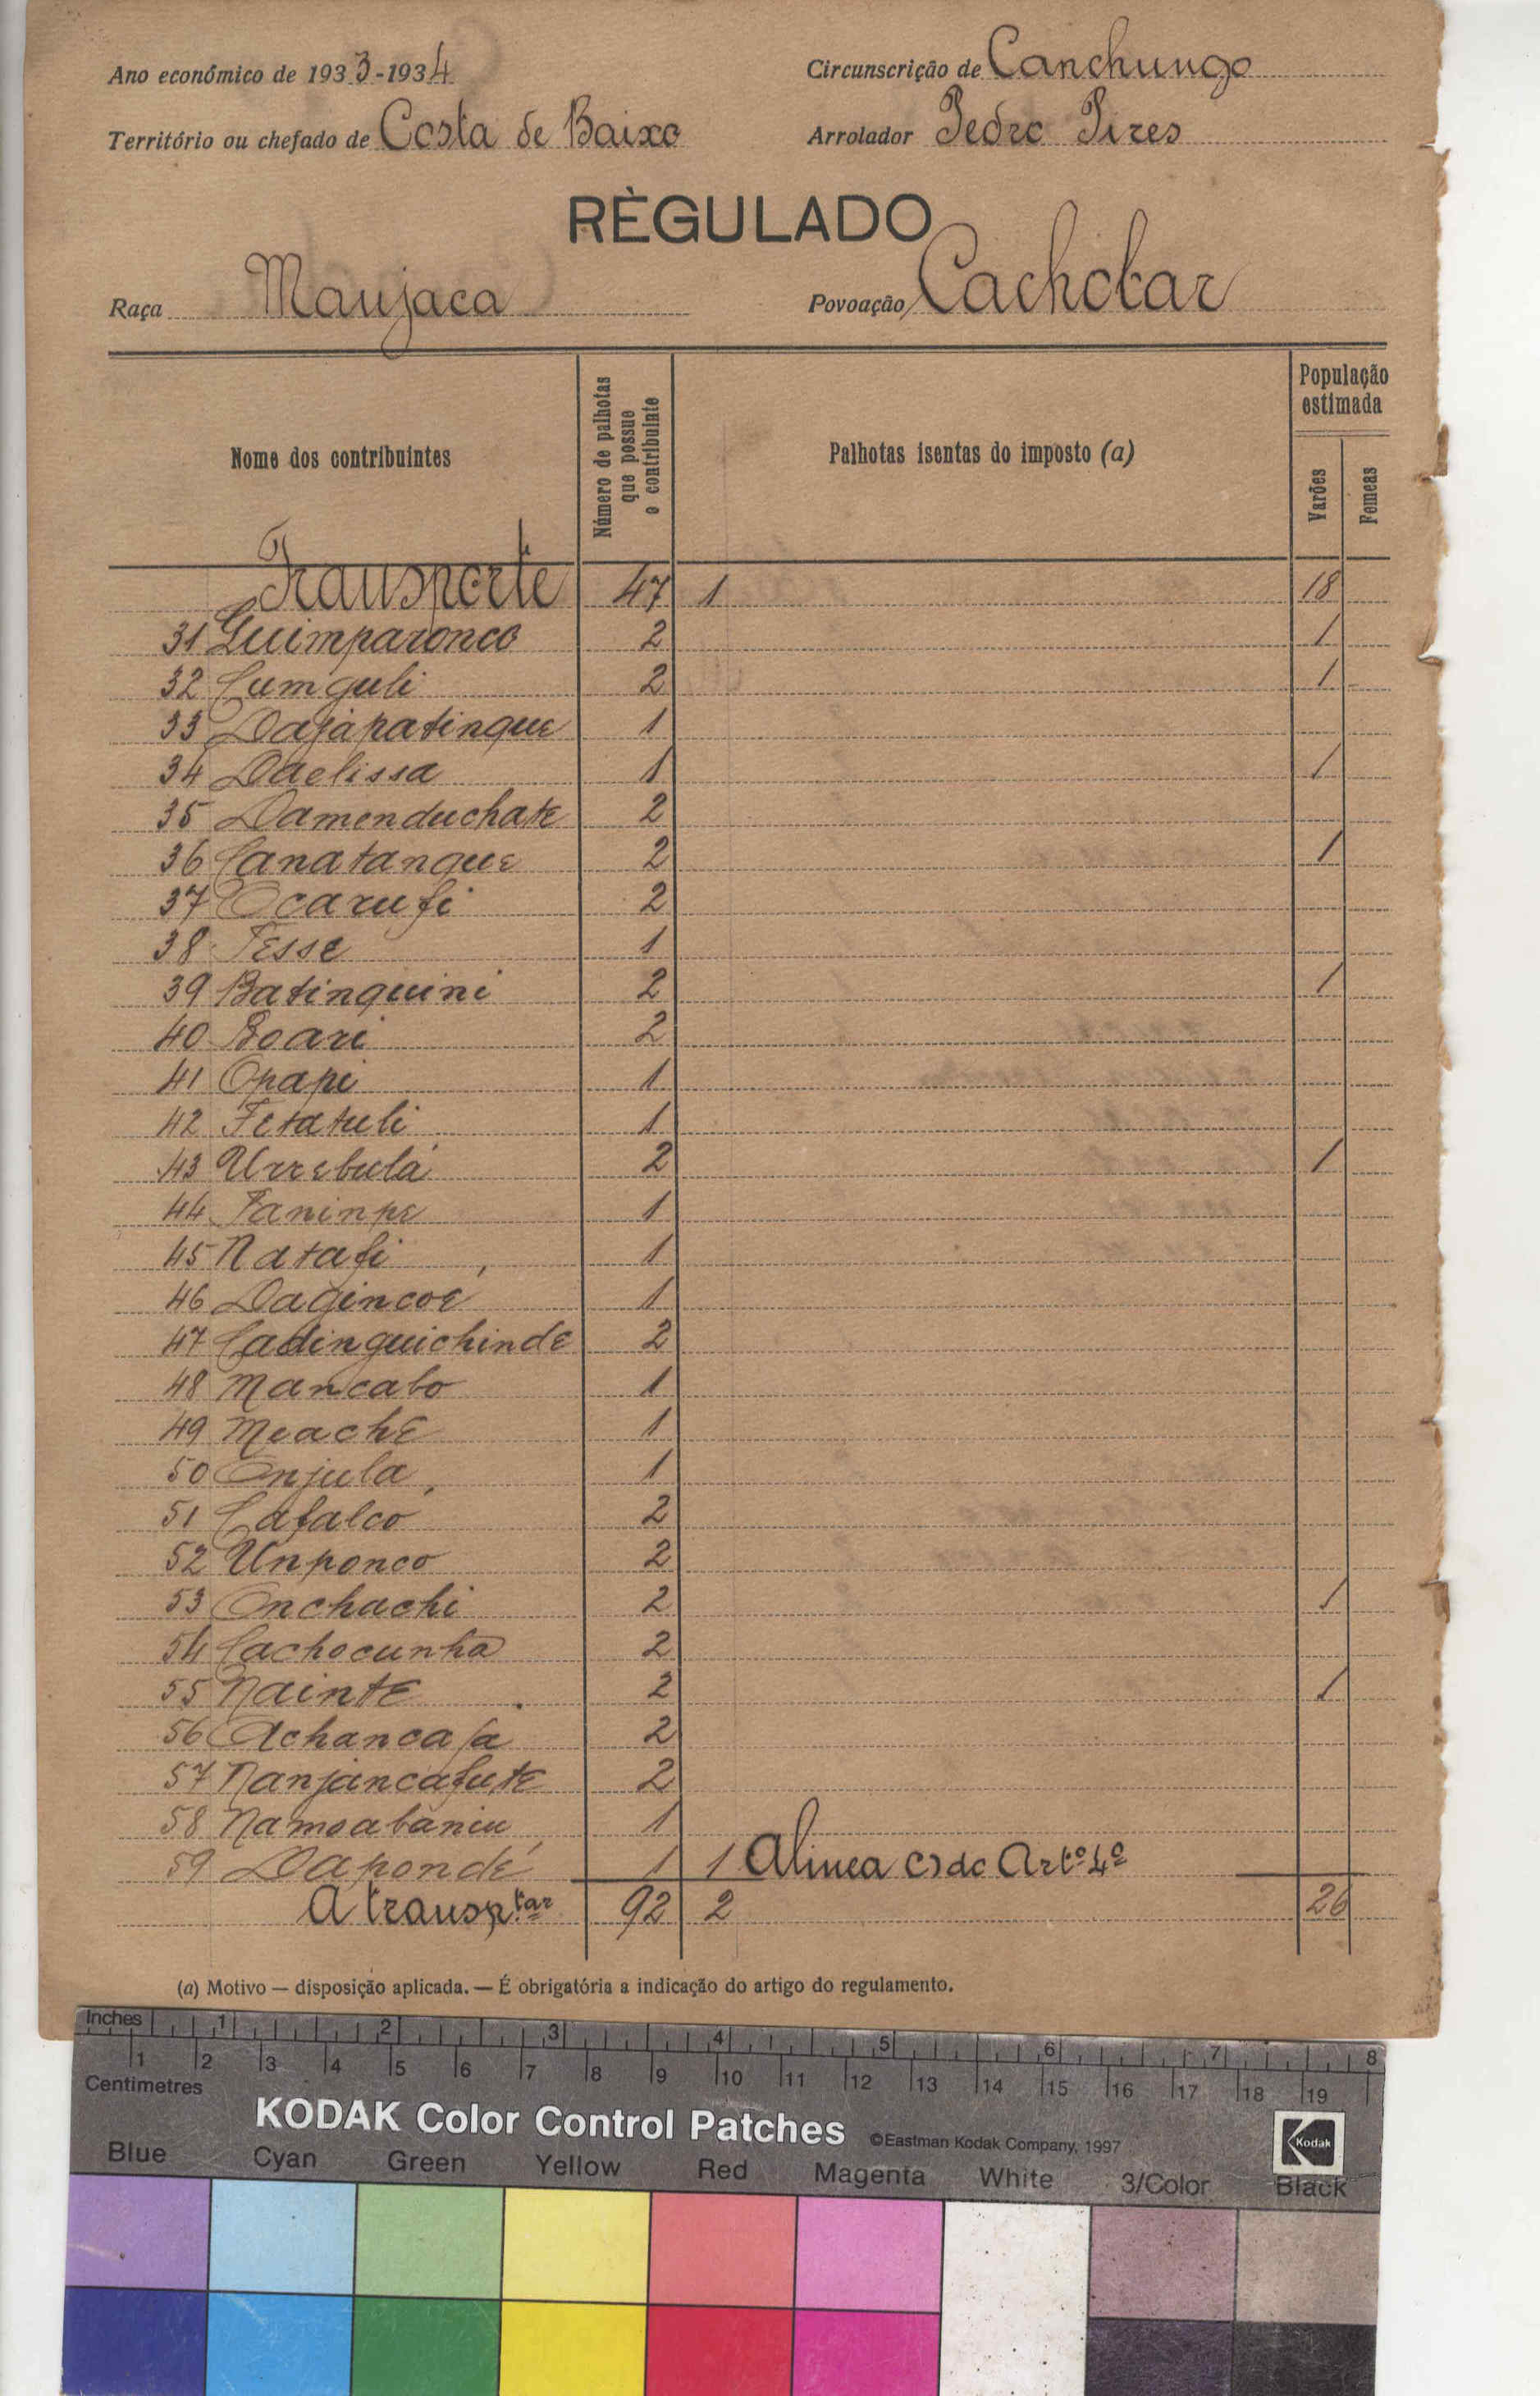 Ano económico de 1933-1934 Circunscrição de Canchungo
Território ou chefado de Costa de Baixo Arrolador Pedro Pires
RÈGULADO
Raça Manjaca Povoação Cachobar
Nome dos contribuintes
Número de palhotas que possue o contribuinte
Palhotas isentas do imposto (a)
População estimada
Varões
Femeas
Transporte 47 1 18
31 Guimparonco 2 1
32 Cumguli 2 1
33 Dajápatinque 1
34 Daelissa 1 1
35 Damenduchate 2
36 Canatanque 2 1
37 Ocarufi 2
38 Tesse 1
39 Batinquini 2 1
40 Boari 2
41 Opapi 1
42 Fetatuli 1
43 Urrebulá 2 1
44 Faninpe 1
45 Natafi 1
46 Dagincoé 1
47 Cadinguichinde 2
48 Mancabo 1
49 Meache 1
50 Onjula 1
51 Cafalco 2
52 Unponco 2
53 Onchachi 2 1
54 Cachocunha 2
55 Nainte 2 1
56 Achancafa 2
57 Nanjancafute 2
58 Namoabaniu 1
59 Dapondé 1 1 Alinea c) do Artº 4º
A transp.tar 92 2 26
(a) Motivo — disposição aplicada. — É obrigatória a indicação do artigo do regulamento.
Inches 1 2 3 4 5 6 7 8
1 2 3 4 5 6 7 8 9 10 11 12 13 14 15 16 17 18 19
Centimetres
KODAK Color Control Patches ©Eastman Kodak Company, 1997 Kodak
Blue Cyan Green Yellow Red Magenta White 3/Color Black